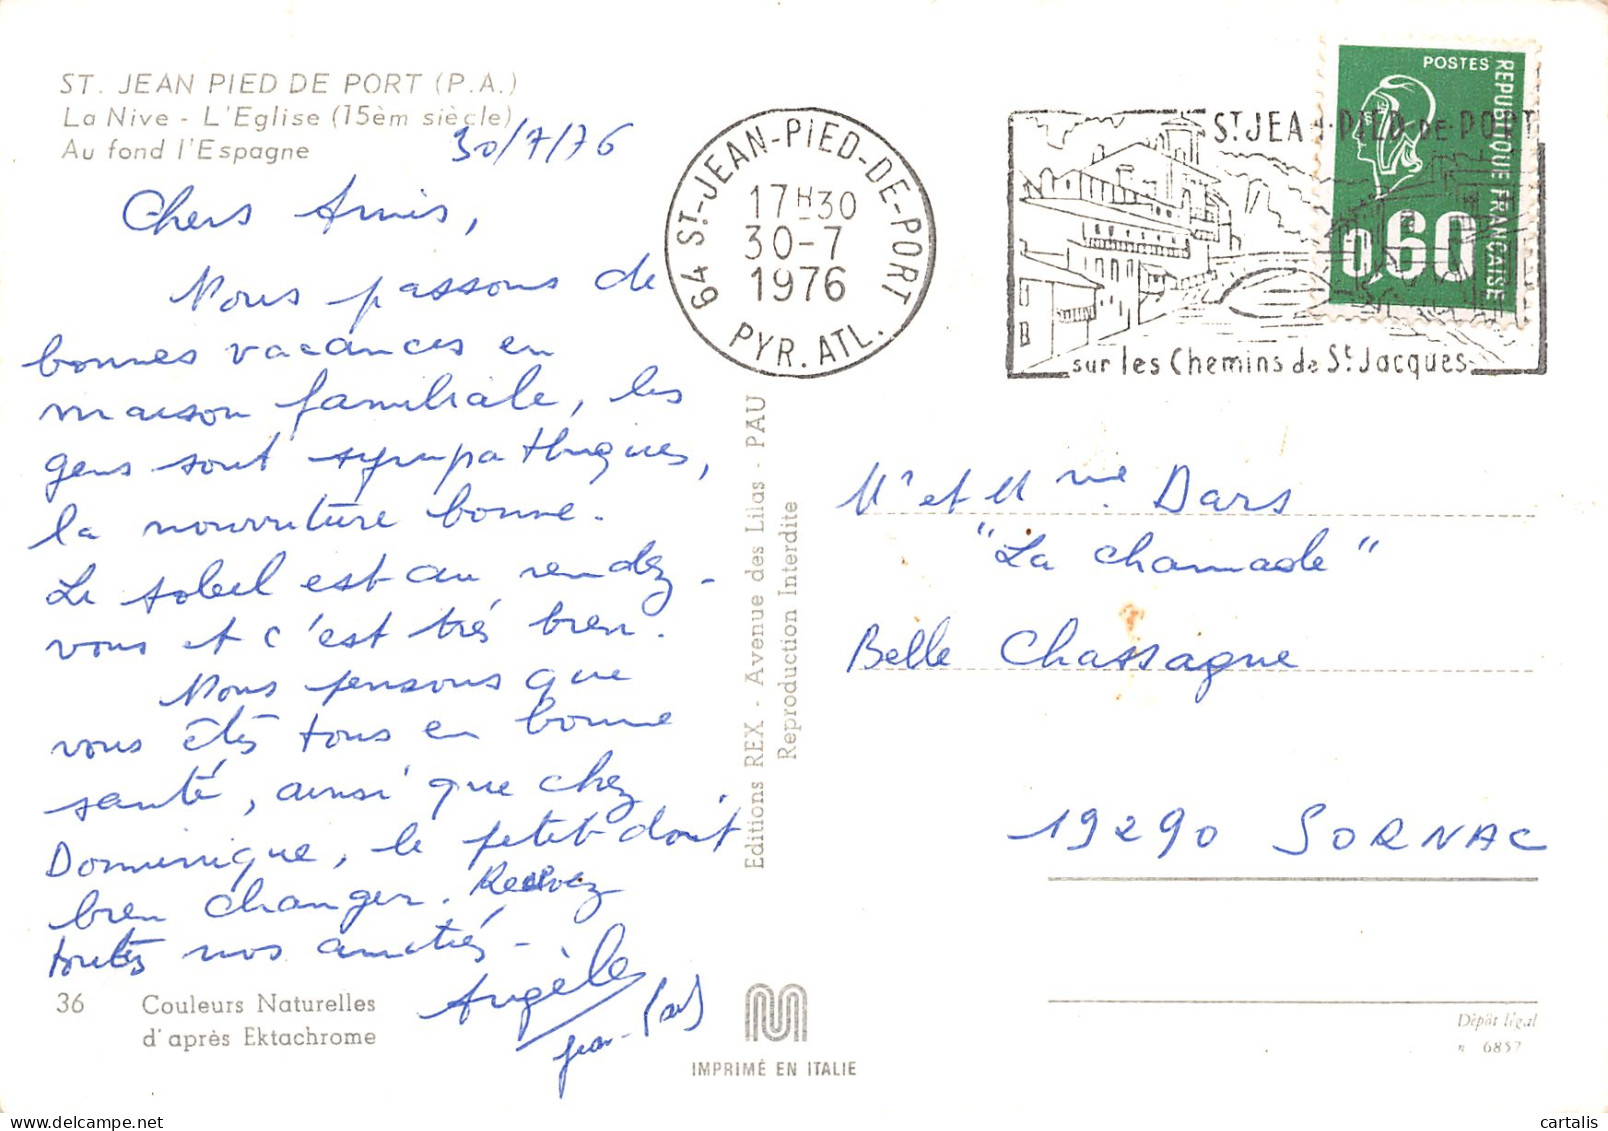 ST. JEAN PIED DE PORT (P.A.)
La Nive - L'Eglise (15èm siècle)
Au fond l'Espagne
30/7/76
Chers Amis,
Nous passons de
bonnes vacances en
maison familiale, les
gens sont sympathiques,
la nourriture bonne.
Le soleil est au rendez-
vous et c'est très bien.
Nous pensons que
vous êtes tous en bonne
santé, ainsi que chez
Dominique, le petit doit
bien changer. Recevez
toutes nos amitiés -
Angèle
Jean-Paul
36 Couleurs Naturelles
d'après Ektachrome
Editions REX - Avenue des Lilas - PAU
Reproduction Interdite
IMPRIMÉ EN ITALIE
64 ST-JEAN-PIED-DE-PORT
17H30
30-7
1976
PYR. ATL.
ST JEAN-PIED-DE-PORT
sur les Chemins de St Jacques
POSTES
REPUBLIQUE FRANCAISE
0,60
Mr et Mme. Dars
"La chamade"
Belle Chassagne
19290 SORNAC
Dépôt légal
n 6857
cartalis